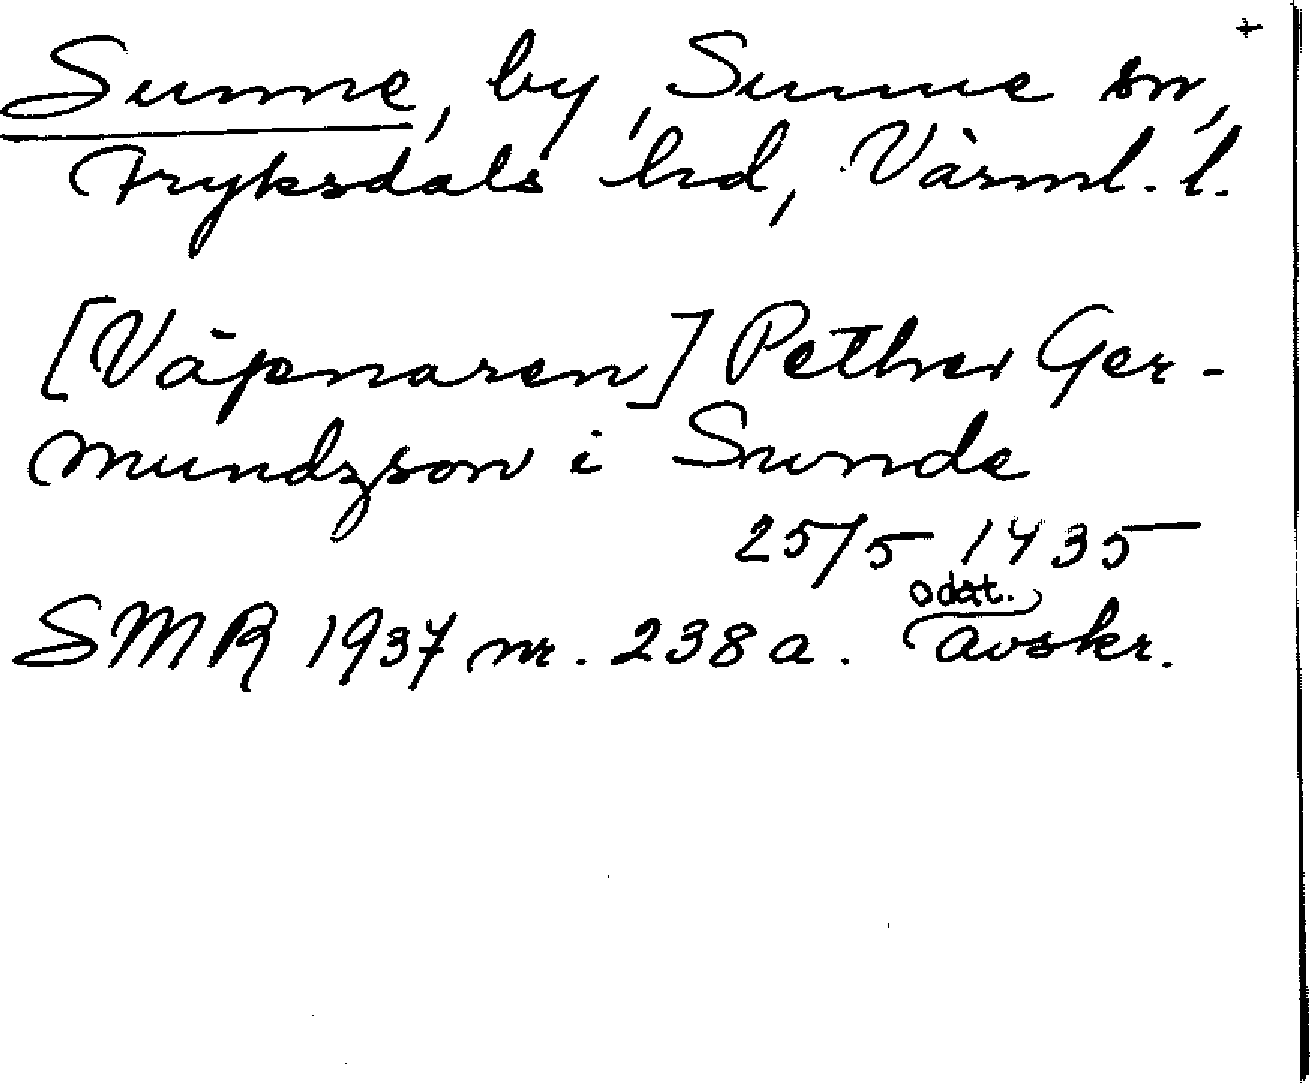 +
Sunne, by, Sunne sn,
Fryksdals hd, Värml. l.
[Väpnaren] Pether Ger-
mundzson i Sunde
25/5 1435
odat.
SMR 1937 nr. 238a. avskr.